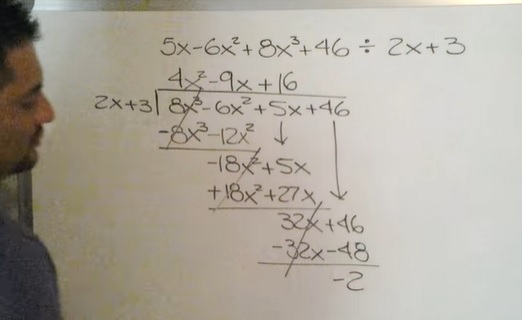 5x-6x²+8x³+46 ÷ 2x+3
4x²-9x+16
2x+3 8x³-6x²+5x+46
-8x³-12x² ↓
-18x²+5x
+18x²+27x ↓
32x+46
-32x-48
-2